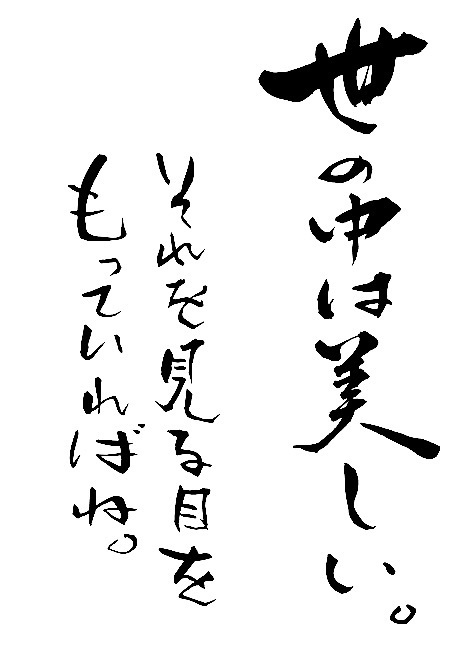 世の中は美しい。
それを見る目を
もっていればね。